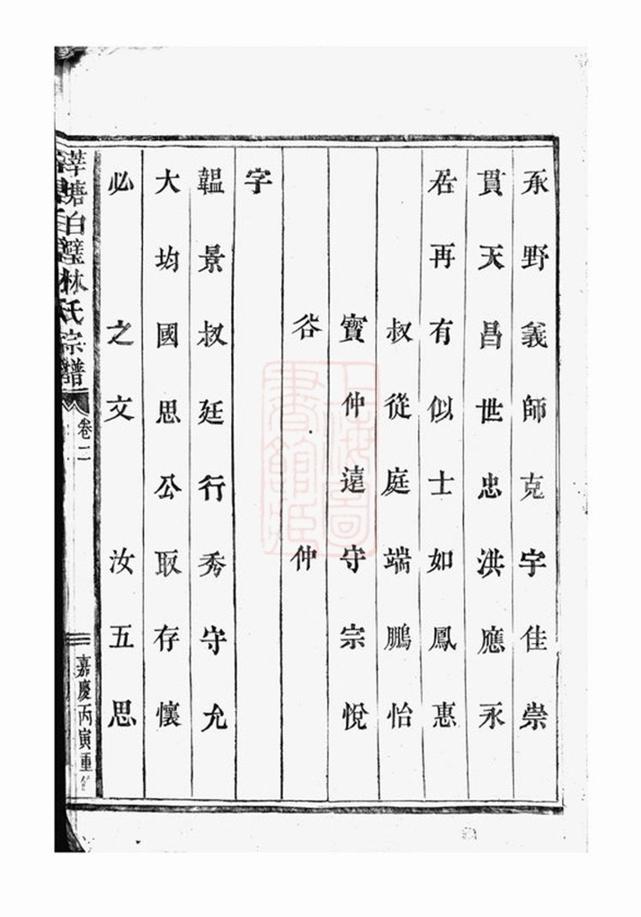 承野義師克宇佳崇
貫天昌世忠洪應永
若再有似士如鳳惠
叔從庭端鵬怡
寶仲遠守宗悅
谷仲
字
韞景叔廷行秀守允
大均國思公取存懷
必之文汝五思
華塘白璧林氏宗譜
卷二
嘉慶丙寅重
上海圖書館藏